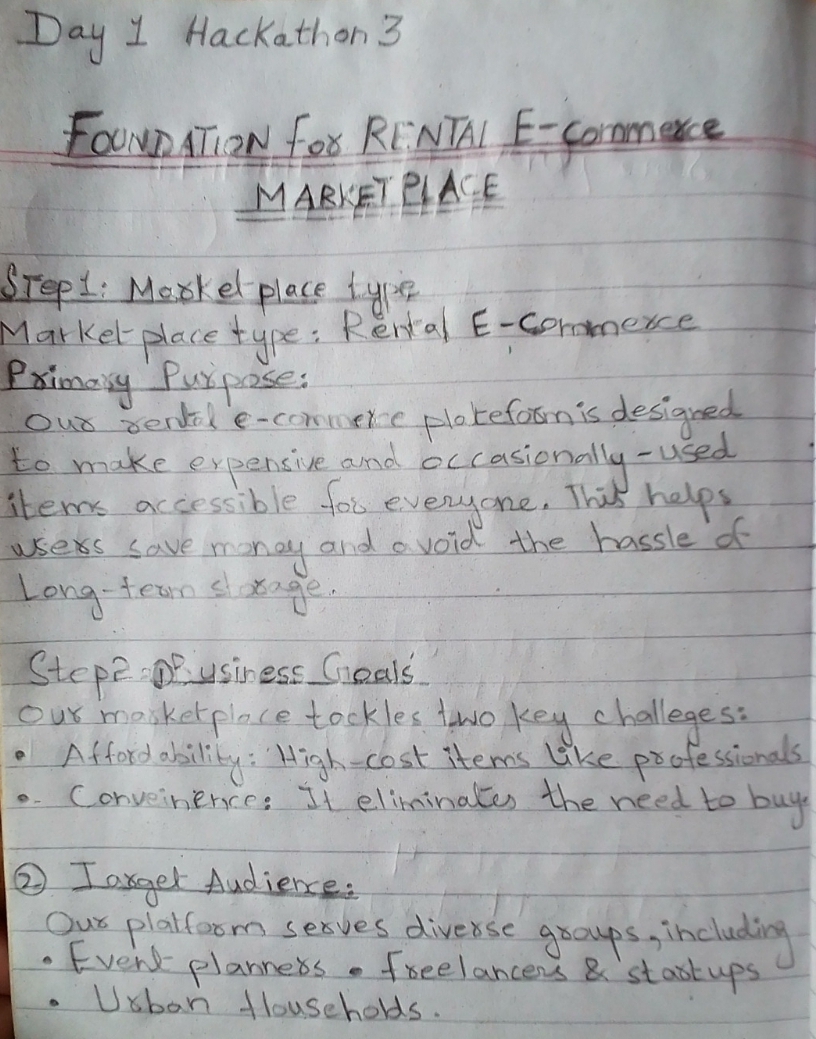 Day 1 Hackathon 3
FOUNDATION for RENTAL E-commerce
MARKET PLACE
Step1: Market place type
Market place type: Rental E-commerce
Primary Purpose:
Our rental e-commerce plateform is designed
to make expensive and occasionally-used
items accessible for everyone. This helps
users save money and avoid the hassle of
Long-term storage.
Step2: ① Business Goals
Our marketplace tackles two key challeges:
• Affordability: High-cost items like professionals
• Conveinence: It eliminates the need to buy.
② Target Audience:
Our platform serves diverse groups, including
• Event planners • freelancers & startups
• Urban Households.